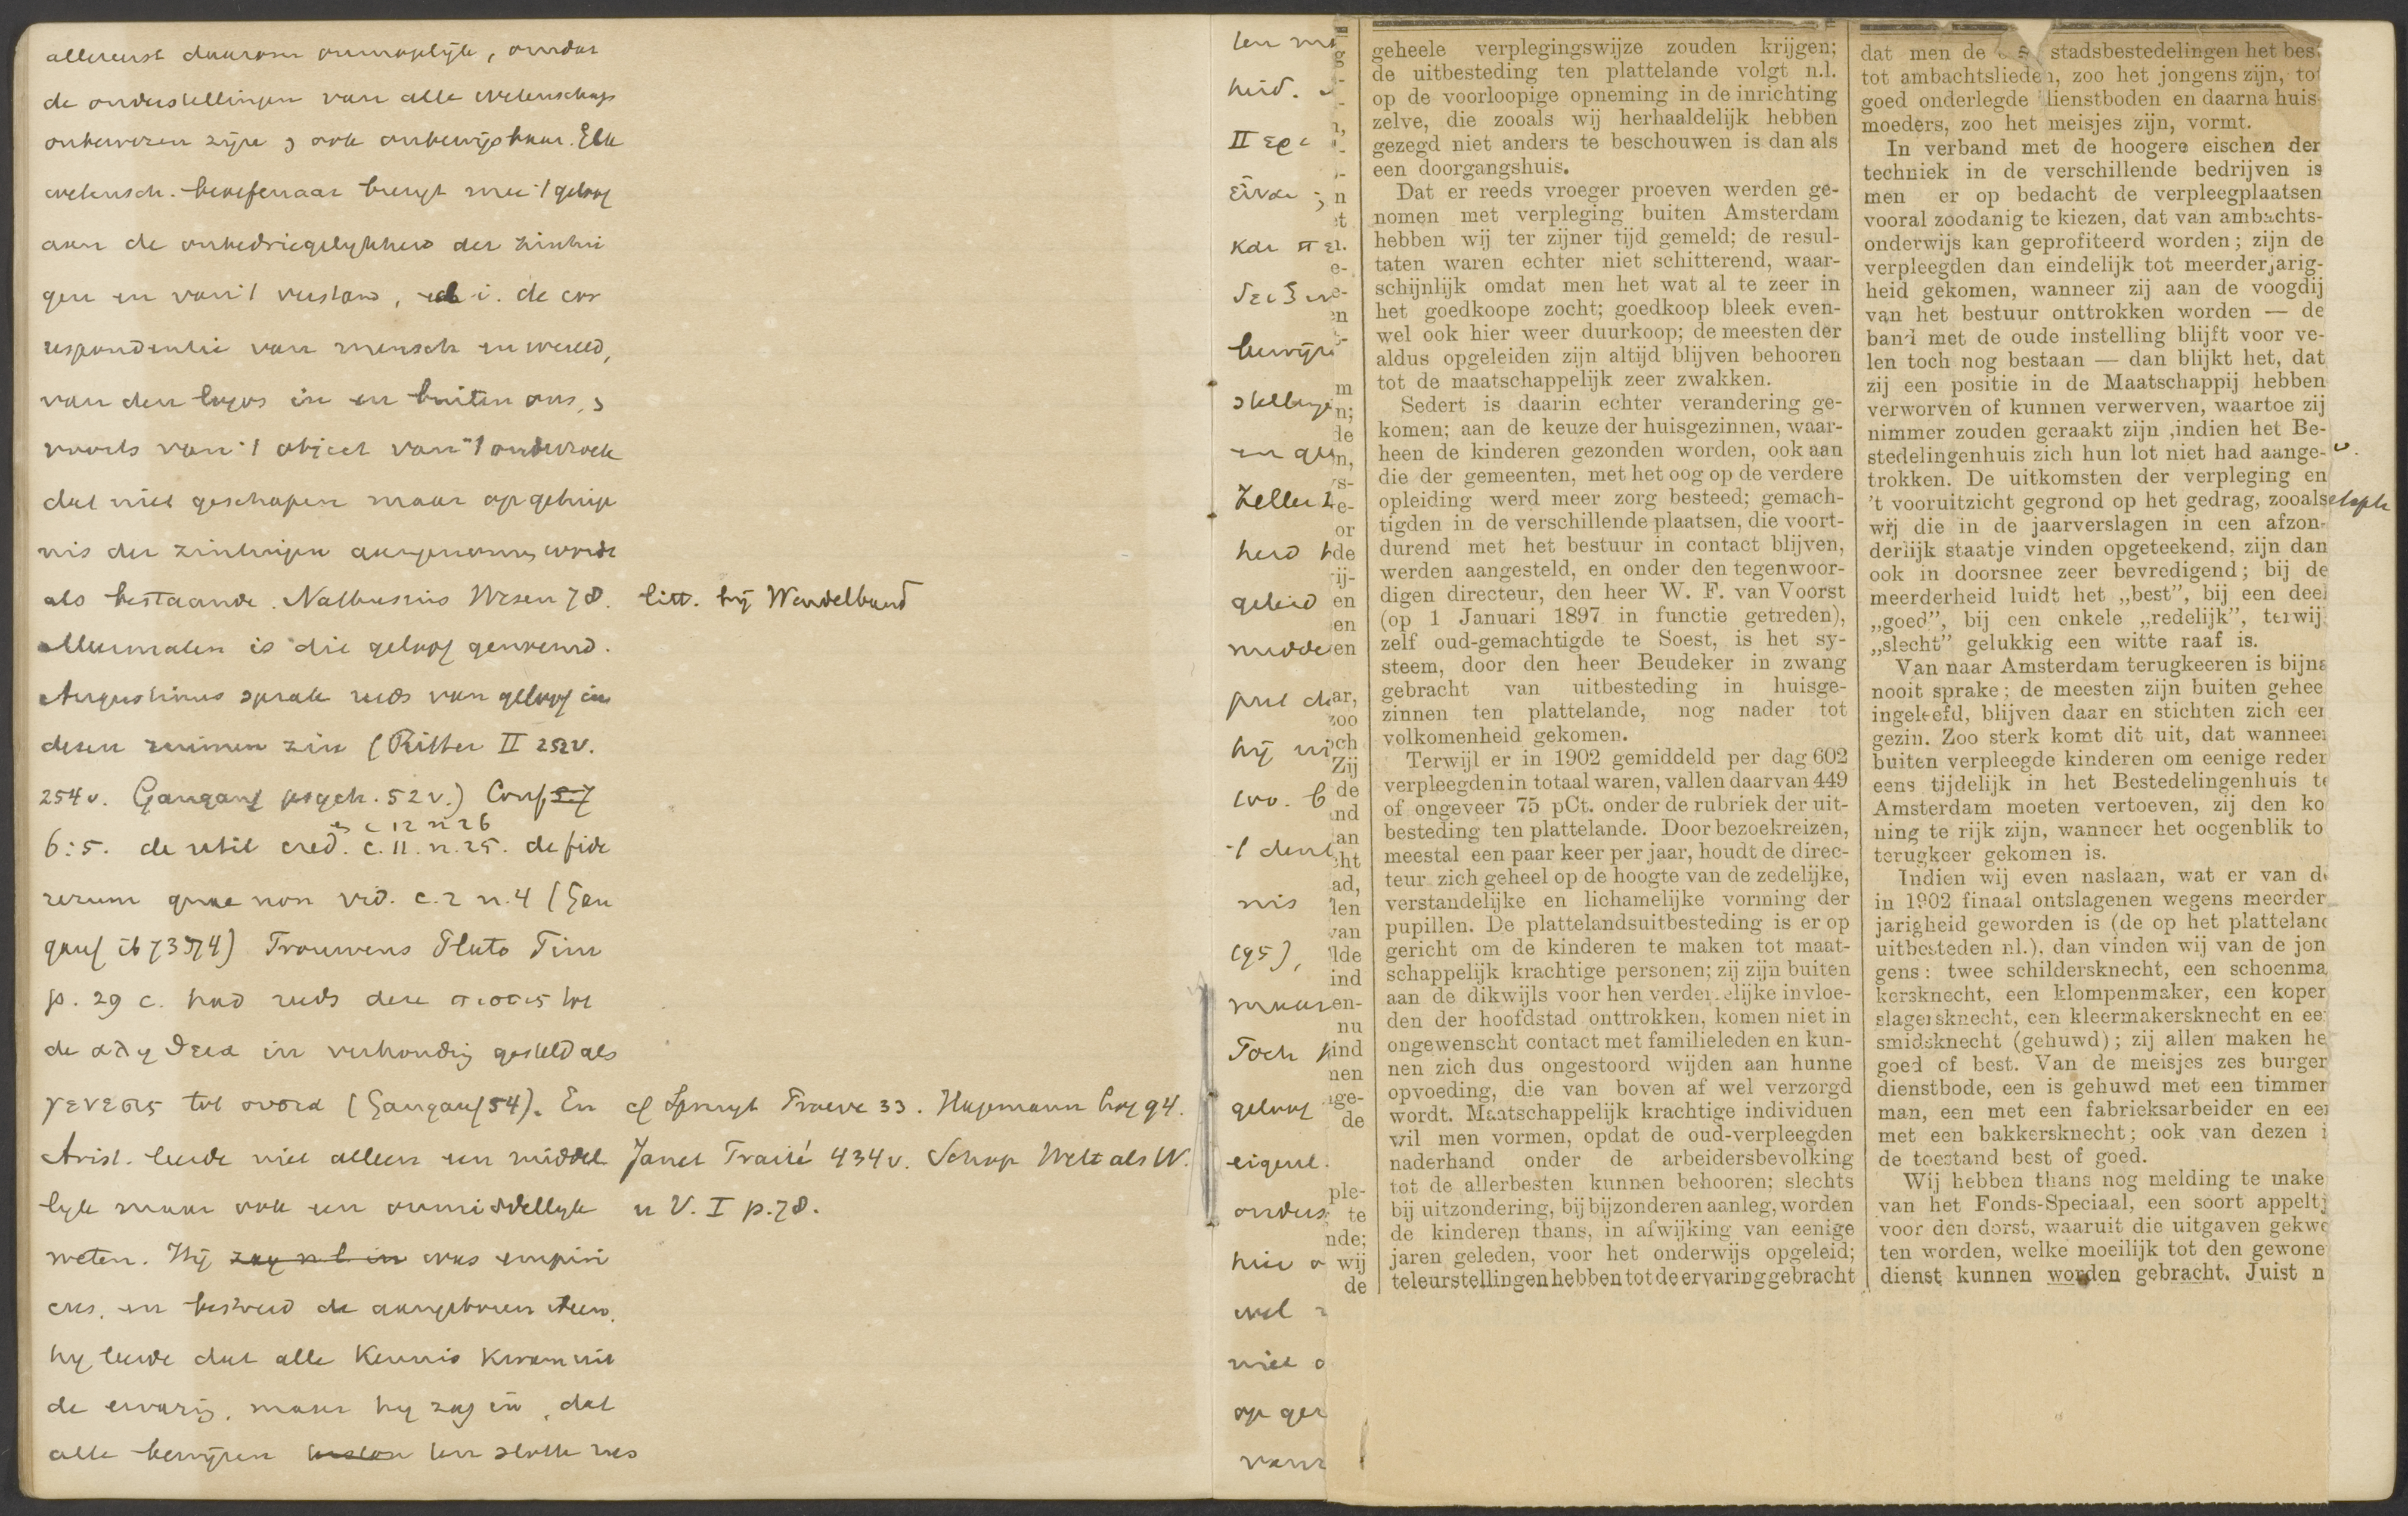 allereerst daarom onmogelijk, omdat
de onderstellingen van alle wetenschap
onbewezen zijn en ook onbewijsbaar. Elk
wetensch. beoefenaar brengt mee 't geloof
aan de onbedriegelijkheid der zintui
gen en van 't verstand, i. de cor
respondentie van mensch en wereld,
van den logos in en buiten ons,
voorts van 't object van 't onderzoek
dat niet geschapen maar op getuige
nis der zintuigen aangenomen wordt
als bestaande. Nathusius Wesen 78. litt. bij Windelband
Meermalen is die geloof genoemd.
Augustinus sprak reeds van geloof in
dezen ruimen zin (Ritter II 252v.
254v. Gangauf psych. 52v.) Conf
6:5. de util cred. c.11. n.25. de fide
c 12 n 26
rerum quae non vid. c.2 n.4 (Gan
gauf ib 73 74) Trouwens Plato Tim
p. 29 c. had reeds deze πιστις tot
de αληθεια in verhouding gesteld als
γενεσις tot ουσια (Gangauf 54). En cf Spruyt Proeve 33. Hagemann Log 94.
Arist. leerde niet alleen een middel Janet Traité 434v. Schop Welt als W.
lijk maar ook een onmiddellijk u V. I p.78.
weten. Hij zag nl. in was empiri
cus, en bestreed de aangeboren ideeën,
hij leerde dat alle kennis kwam uit
de ervaring, maar hij zag in, dat
alle bewijzen ten slotte rus
heid.
II
einde
bewijze
stellinge
en
Zeller
heid
geleid
midde
hij
nis
(95),
maar
Toch
geloof
eigenl.
onders
hier
wel
niet
op
van
geheele verplegingswijze zouden krijgen;
de uitbesteding ten plattelande volgt n.l.
op de voorloopige opneming in de inrichting
zelve, die zooals wij herhaaldelijk hebben
gezegd niet anders te beschouwen is dan als
een doorgangshuis.
Dat er reeds vroeger proeven werden ge-
nomen met verpleging buiten Amsterdam
hebben wij ter zijner tijd gemeld; de resul-
taten waren echter niet schitterend, waar-
schijnlijk omdat men het wat al te zeer in
het goedkoope zocht; goedkoop bleek even-
wel ook hier weer duurkoop; de meesten der
aldus opgeleiden zijn altijd blijven behooren
tot de maatschappelijk zeer zwakken.
Sedert is daarin echter verandering ge-
komen; aan de keuze der huisgezinnen, waar-
heen de kinderen gezonden worden, ook aan
die der gemeenten, met het oog op de verdere
opleiding werd meer zorg besteed; gemach-
tigden in de verschillende plaatsen, die voort-
durend met het bestuur in contact blijven,
werden aangesteld, en onder den tegenwoor-
digen directeur, den heer W. F. van Voorst
(op 1 Januari 1897 in functie getreden),
zelf oud-gemachtigde te Soest, is het sy-
steem, door den heer Beudeker in zwang
gebracht van uitbesteding in huisge-
zinnen ten plattelande, nog nader tot
volkomenheid gekomen.
Terwijl er in 1902 gemiddeld per dag 602
verpleegden in totaal waren, vallen daarvan 449
of ongeveer 75 pCt. onder de rubriek der uit-
besteding ten plattelande. Door bezoekreizen,
meestal een paar keer per jaar, houdt de direc-
teur zich geheel op de hoogte van de zedelijke,
verstandelijke en lichamelijke vorming der
pupillen. De plattelandsuitbesteding is er op
gericht om de kinderen te maken tot maat-
schappelijk krachtige personen; zij zijn buiten
aan de dikwijls voor hen verderfelijke invloe-
den der hoofdstad onttrokken, komen niet in
ongewenscht contact met familieleden en kun-
nen zich dus ongestoord wijden aan hunne
opvoeding, die van boven af wel verzorgd
wordt. Maatschappelijk krachtige individuen
wil men vormen, opdat de oud-verpleegden
naderhand onder de arbeidersbevolking
tot de allerbesten kunnen behooren; slechts
bij uitzondering, bij bijzonderen aanleg, worden
de kinderen thans, in afwijking van eenige
jaren geleden, voor het onderwijs opgeleid;
teleurstellingen hebben tot de ervaring gebracht
dat men de stadsbestedelingen het best
tot ambachtslieden, zoo het jongens zijn, tot
goed onderlegde dienstboden en daarna huis-
moeders, zoo het meisjes zijn, vormt.
In verband met de hoogere eischen der
techniek in de verschillende bedrijven is
men er op bedacht de verpleegplaatsen
vooral zoodanig te kiezen, dat van ambachts-
onderwijs kan geprofiteerd worden; zijn de
verpleegden dan eindelijk tot meerderjarig-
heid gekomen, wanneer zij aan de voogdij
van het bestuur onttrokken worden — de
band met de oude instelling blijft voor ve-
len toch nog bestaan — dan blijkt het, dat
zij een positie in de Maatschappij hebben
verworven of kunnen verwerven, waartoe zij
nimmer zouden geraakt zijn ,indien het Be-
stedelingenhuis zich hun lot niet had aange-
trokken. De uitkomsten der verpleging en
't vooruitzicht gegrond op het gedrag, zooals
wij die in de jaarverslagen in een afzon-
derlijk staatje vinden opgeteekend, zijn dan
ook in doorsnee zeer bevredigend; bij de
meerderheid luidt het „best”, bij een deel
„goed”, bij een enkele „redelijk”, terwijl
„slecht” gelukkig een witte raaf is.
Van naar Amsterdam terugkeeren is bijna
nooit sprake; de meesten zijn buiten gehee
ingeleefd, blijven daar en stichten zich een
gezin. Zoo sterk komt dit uit, dat wanneer
buiten verpleegde kinderen om eenige reden
eens tijdelijk in het Bestedelingenhuis te
Amsterdam moeten vertoeven, zij den ko
ning te rijk zijn, wanneer het oogenblik to
terugkeer gekomen is.
Indien wij even naslaan, wat er van de
in 1902 finaal ontslagenen wegens meerder
jarigheid geworden is (de op het platteland
uitbesteden nl.), dan vinden wij van de jon
gens: twee schildersknecht, een schoenma
kersknecht, een klompenmaker, een koper
slagersknecht, een kleermakersknecht en ee
smidsknecht (gehuwd); zij allen maken he
goed of best. Van de meisjes zes burger
dienstbode, een is gehuwd met een timmer
man, een met een fabrieksarbeider en een
met een bakkersknecht; ook van dezen i
de toestand best of goed.
Wij hebben thans nog melding te make
van het Fonds-Speciaal, een soort appeltj
voor den dorst, waaruit die uitgaven gekwe
ten worden, welke moeilijk tot den gewone
dienst kunnen worden gebracht. Juist n